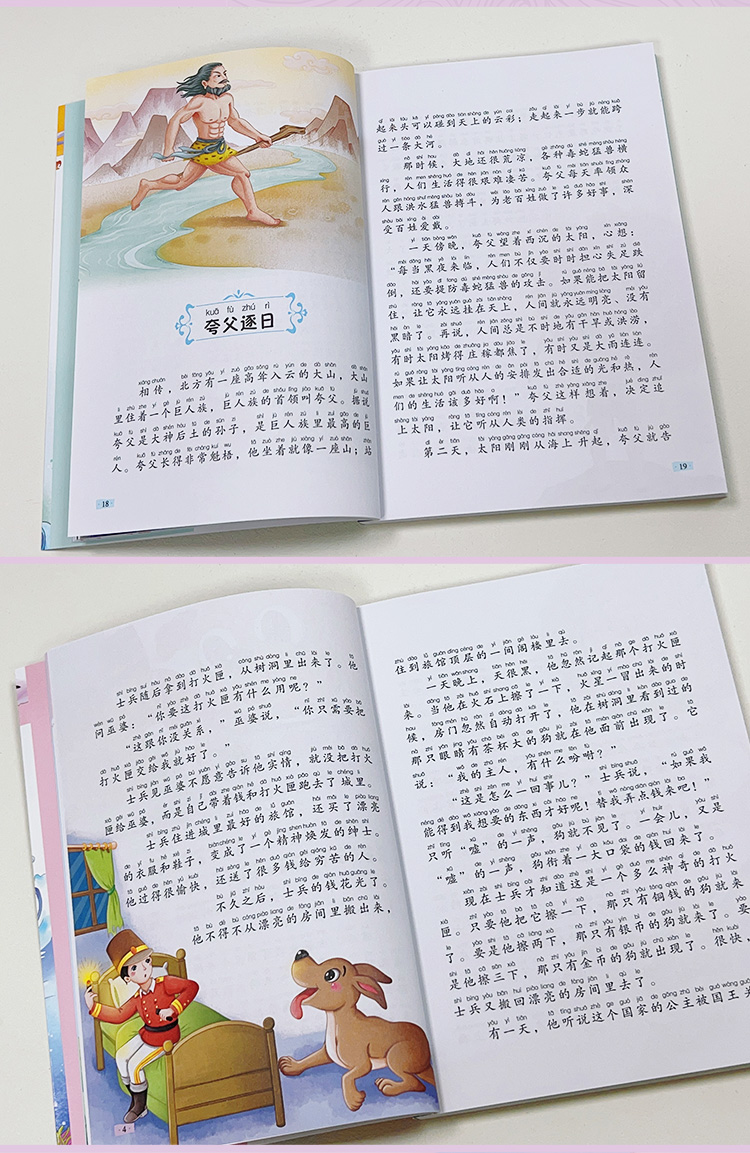 kuā fù zhú rì
夸父逐日
相传，北方有一座高耸入云的大山，大山
里住着一个巨人族，巨人族的首领叫夸父。据说
夸父是大神后土的孙子，是巨人族里最高的巨
人。夸父长得非常魁梧，他坐着就像一座山；站
18
起来头可以碰到天上的云彩；走起来一步就能跨
过一条大河。
那时候，大地还很荒凉，各种毒蛇猛兽横
行，人们生活得很艰难凄苦。夸父每天率领众
人跟洪水猛兽搏斗，为老百姓做了许多好事，深
受百姓爱戴。
一天傍晚，夸父望着西沉的太阳，心想：
“每当黑夜来临，人们不仅要时时担心失足跌
倒，还要提防毒蛇猛兽的攻击。如果能把太阳留
住，让它永远挂在天上，人间就永远明亮、没有
黑暗了。再说，人间总是不时地有干旱或洪涝，
有时太阳烤得庄稼都焦了，有时又是大雨连连。
如果让太阳听从人的安排发出合适的光和热，人
们的生活该多好啊！”夸父这样想着，决定追
上太阳，让它听从人类的指挥。
第二天，太阳刚刚从海上升起，夸父就告
19
士兵随后拿到打火匣，从树洞里出来了。他
问巫婆：“你要这打火匣有什么用呢？”
“这跟你没关系，”巫婆说，“你只需要把
打火匣交给我就好了。”
士兵见巫婆不愿意告诉他实情，就没把打火
匣给巫婆，而是自己带着钱和打火匣跑去了城里。
士兵住进城里最好的旅馆，还买了漂亮
的衣服和鞋子，变成了一个精神焕发的绅士。
他过得很愉快，还送了很多钱给穷苦的人。
不久之后，士兵的钱花光了。
他不得不从漂亮的房间里搬出来，
4
住到旅馆顶层的一间阁楼里去。
一天晚上，天很黑，他忽然记起那个打火匣
来。当他在火石上擦了一下，火星一冒出来的时
候，房门忽然自动打开了，他在树洞里看到过的
那只眼睛有茶杯大的狗就在他面前出现了。它
说：“我的主人，有什么吩咐？”
“这是怎么一回事儿？”士兵说，“如果我
能得到我想要的东西才好呢！替我弄点钱来吧！”
只听“嘘”的一声，狗就不见了。一会儿，又是
“嘘”的一声，狗衔着一大口袋的钱回来了。
现在士兵才知道这是一个多么神奇的打火
匣。只要他把它擦一下，那只有铜钱的狗就来
了。要是他擦两下，那只有银币的狗就来了。要
是他擦三下，那只有金币的狗就出现了。很快，
士兵又搬回漂亮的房间里去了。
有一天，他听说这个国家的公主被国王关